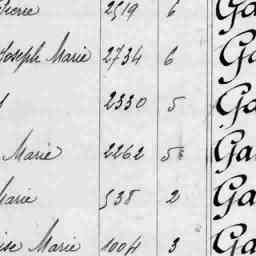 Pierre 2519 6 Ga
Joseph Marie 2734 6 Ga
2330 5 Ga
Marie 2262 5 Ga
Marie 538 2 Ga
Marie 1004 3 Ga